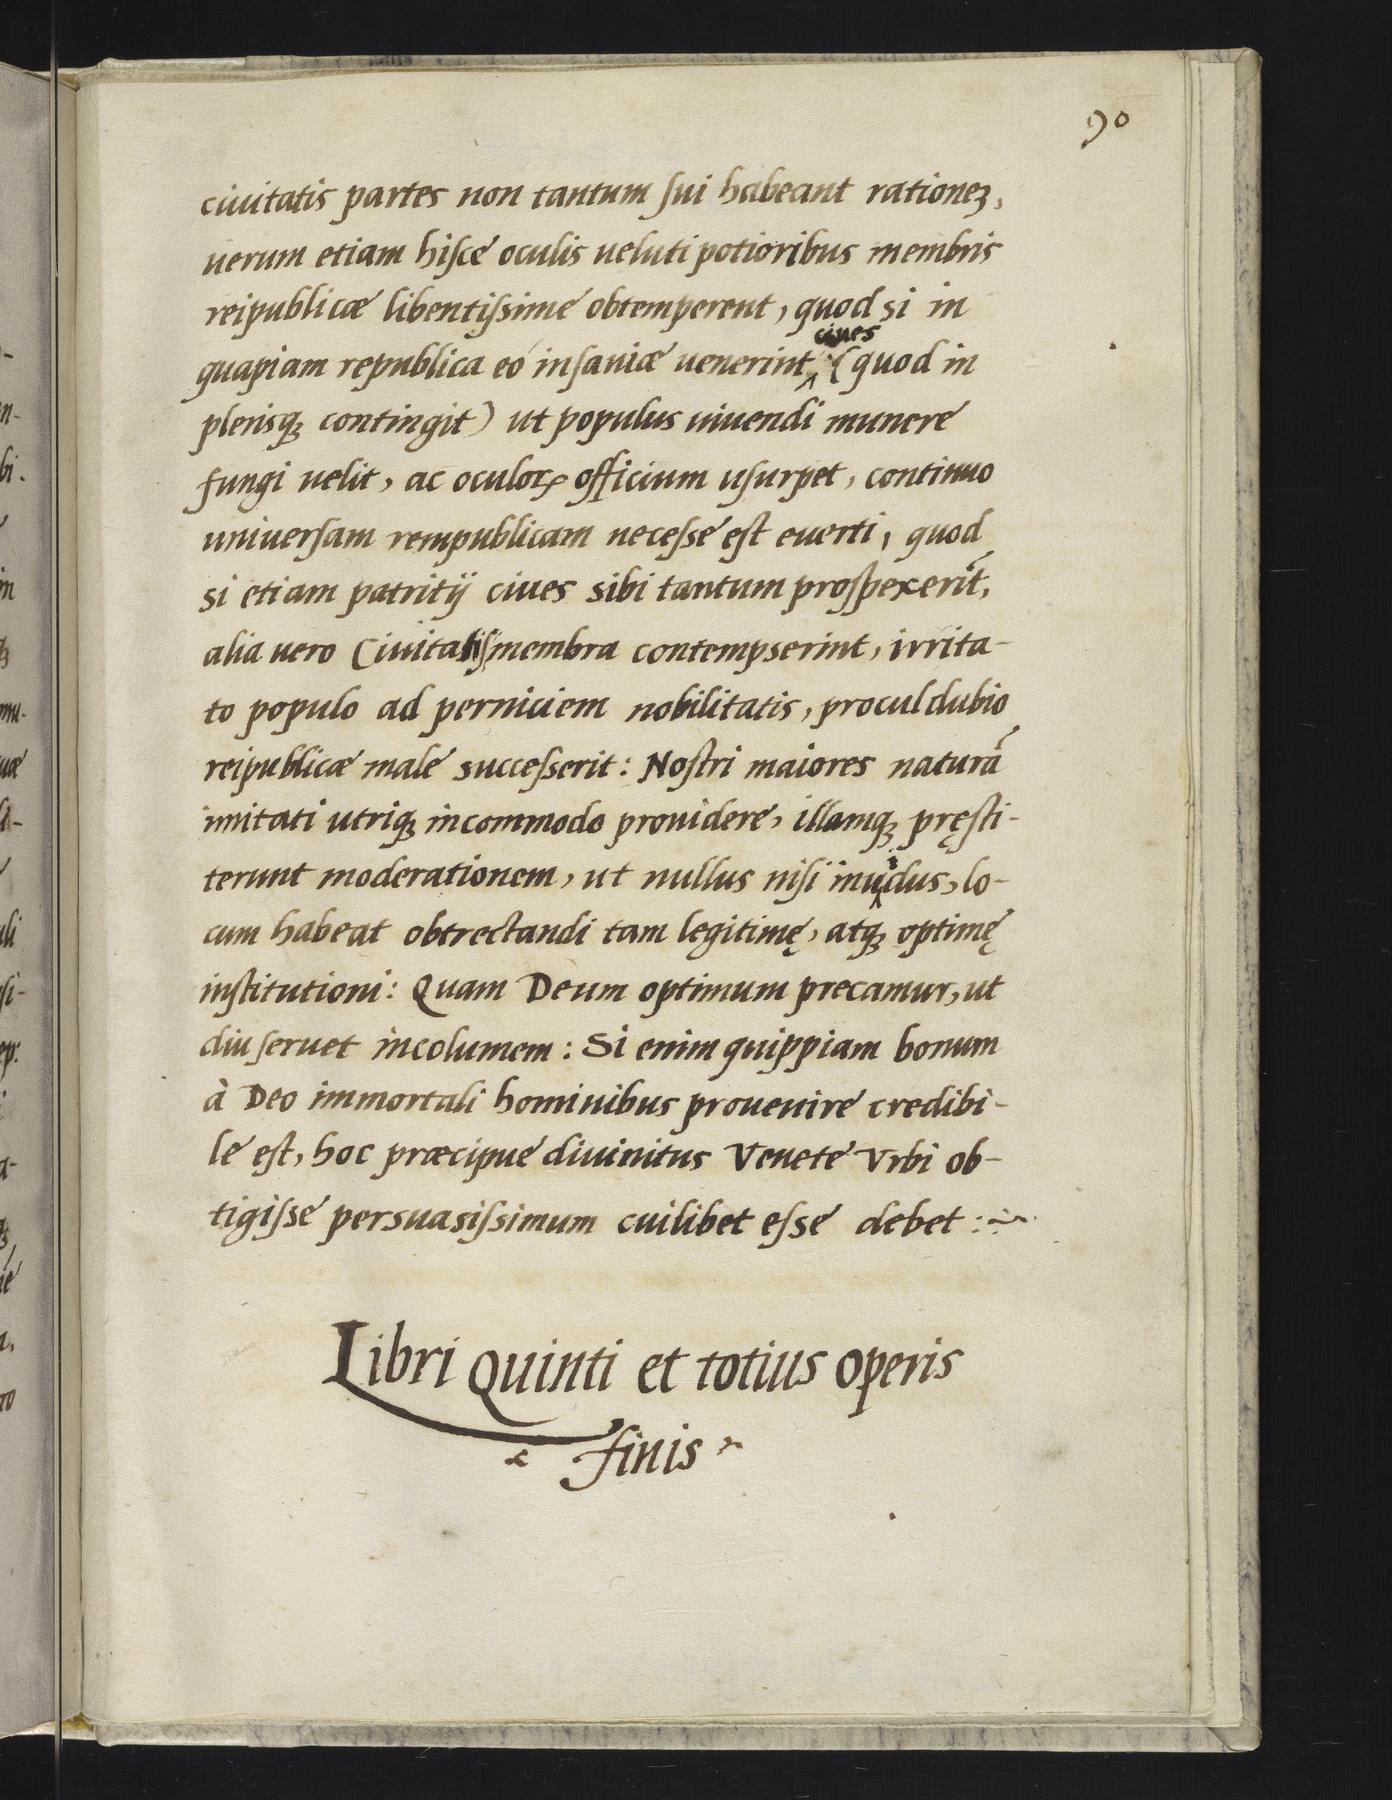 90
ciuitatis partes non tantum ſui habeant rationeʒ,
uerum etiam hiſce oculis ueluti potioribus membris
reipublicæ libentiſsime obtemperent, quod si in
quapiam republica eó inſaniæ uenerint ciues (quod in
plerisqꝫ contingit) ut populus uiuendi munere
fungi uelit, ac oculoꝝ officium uſurpet, continuo
uniuerſam rempublicam neceſse eſt euerti, quod
si etiam patritij ciues sibi tantum proſpexerīt,
alia uero Ciuitatis membra contempserint, irrita-
to populo ad perniciem nobilitatis, proculdubio
reipublicæ male succeſserit: Noſtri maiores naturā
imitati utriqꝫ incommodo prouidere, illamqꝫ pręſti-
terunt moderationem, ut nullus niſi inuidus, lo-
cum habeat obtrectandi tam legitimę, atqꝫ optimę
inſtitutioni: Quam Deum optimum precamur, ut
diu ſeruet incolumem: Si enim quippiam bonum
à Deo immortali hominibus prouenire credibi-
le eſt, hoc præcipue diuinitus Venete Vrbi ob-
tigiſse persuasiſsimum cuilibet eſse debet :~
Libri Quinti et totius operis
finis